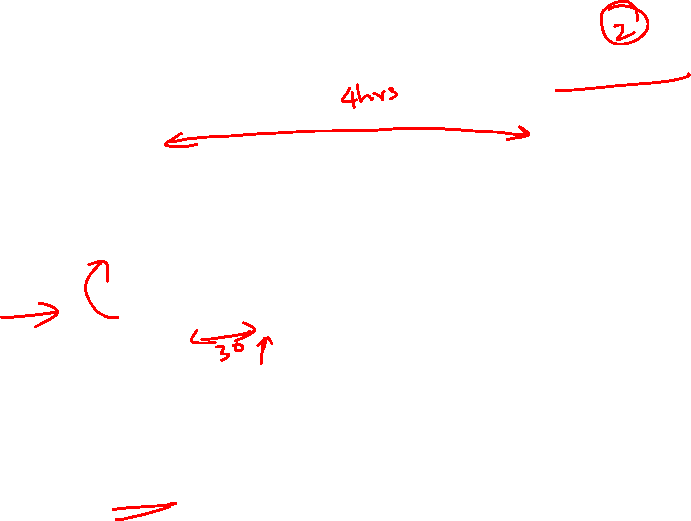 2
4hrs
30